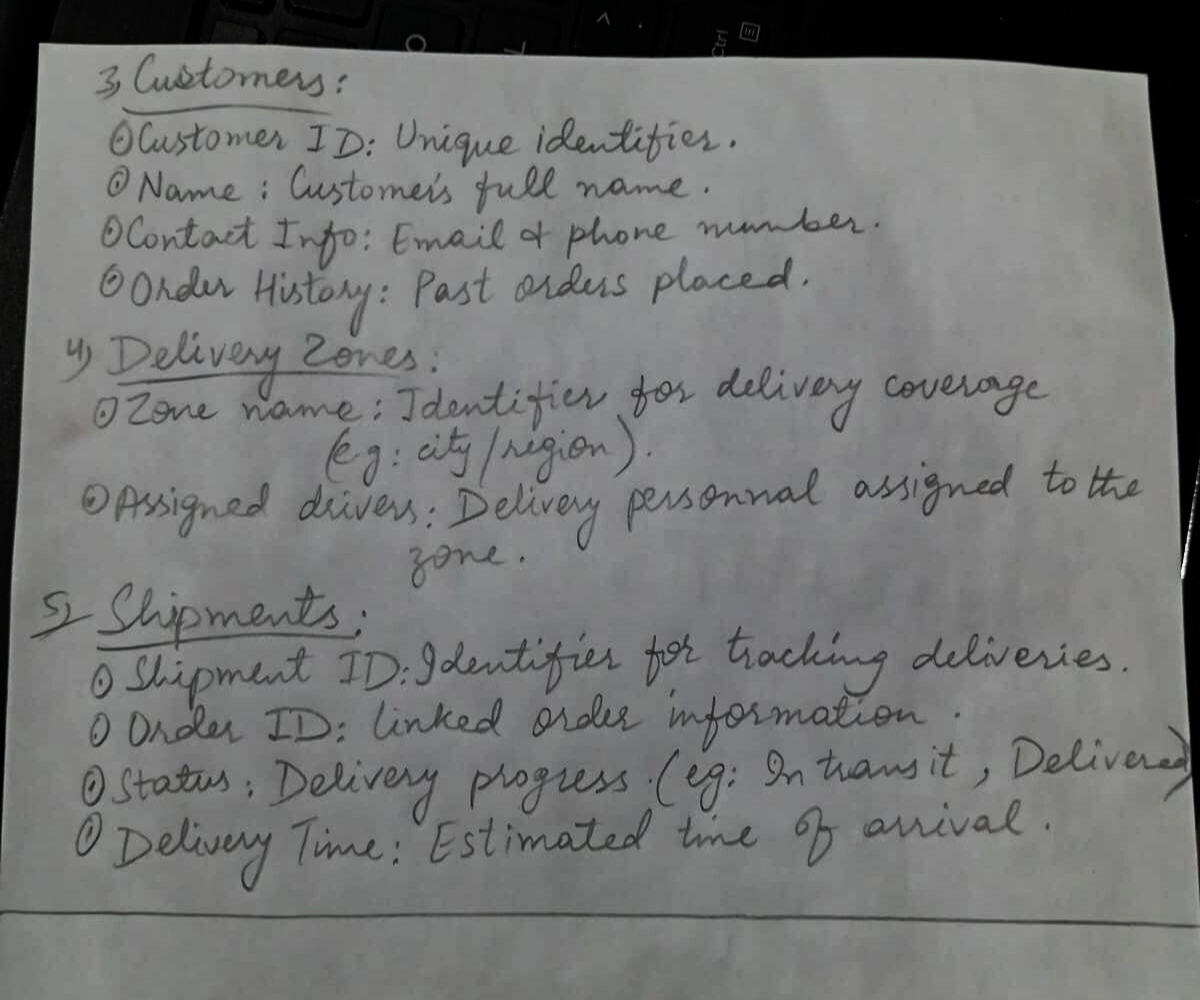 Ctrl
3) Customers:
⊙ Customer ID: Unique identifier.
⊙ Name: Customer's full name.
⊙ Contact Info: Email & phone number.
⊙ Order History: Past orders placed.
4) Delivery Zones:
⊙ Zone name: Identifier for delivery coverage
(e.g: city/region).
⊙ Assigned drivers: Delivery personnal assigned to the
zone.
5) Shipments:
⊙ Shipment ID: Identifier for tracking deliveries.
⊙ Order ID: linked order information.
⊙ Status: Delivery progress. (eg: In transit, Delivered)
⊙ Delivery Time: Estimated time of arrival.